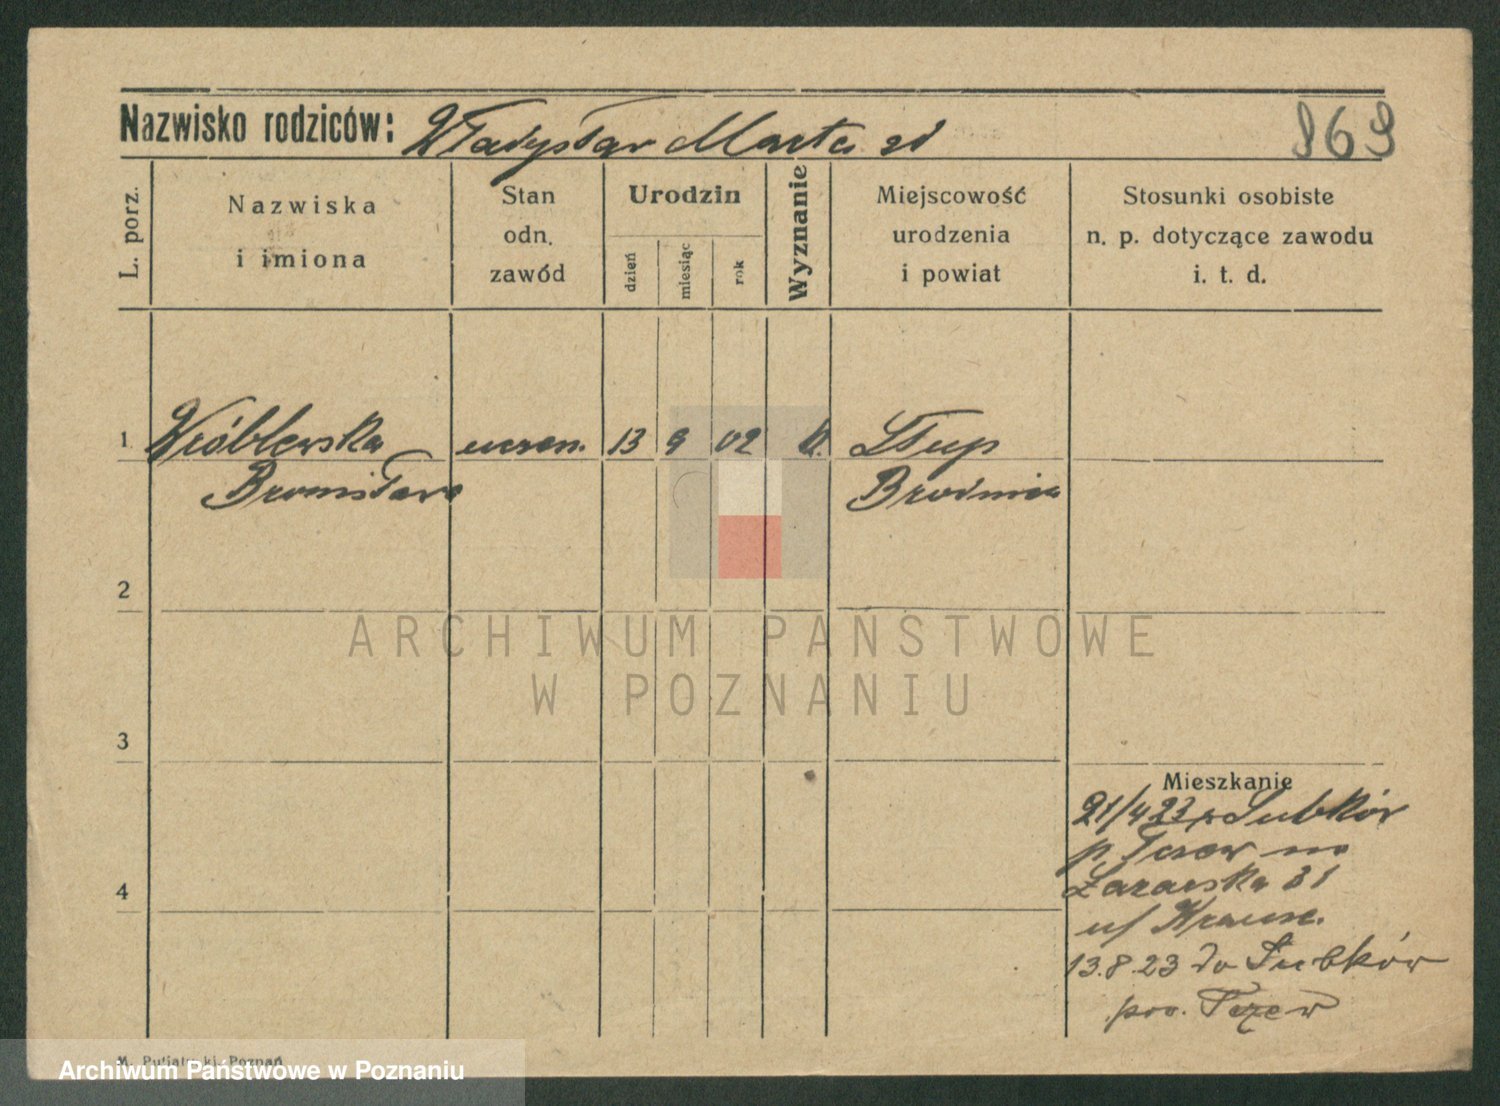 Nazwisko rodziców: Władysław Marta
869
L. porz.
Nazwiska
i imiona
Stan
odn.
zawód
Urodzin
dzień
miesiąc
rok
Wyznanie
Miejscowość
urodzenia
i powiat
Stosunki osobiste
n. p. dotyczące zawodu
i. t. d.
1 Wróblewska uczen. 13 9 02 k. Słup
Bronisława Brodnica
2
3
Mieszkanie
21/4 23 z Subków
p. Tczew na
4 Łazarska 31
u/ Krause.
13.8.23 do Subków
pow. Tczew
M. Putiatycki, Poznań
ARCHIWUM PAŃSTWOWE
W POZNANIU
Archiwum Państwowe w Poznaniu